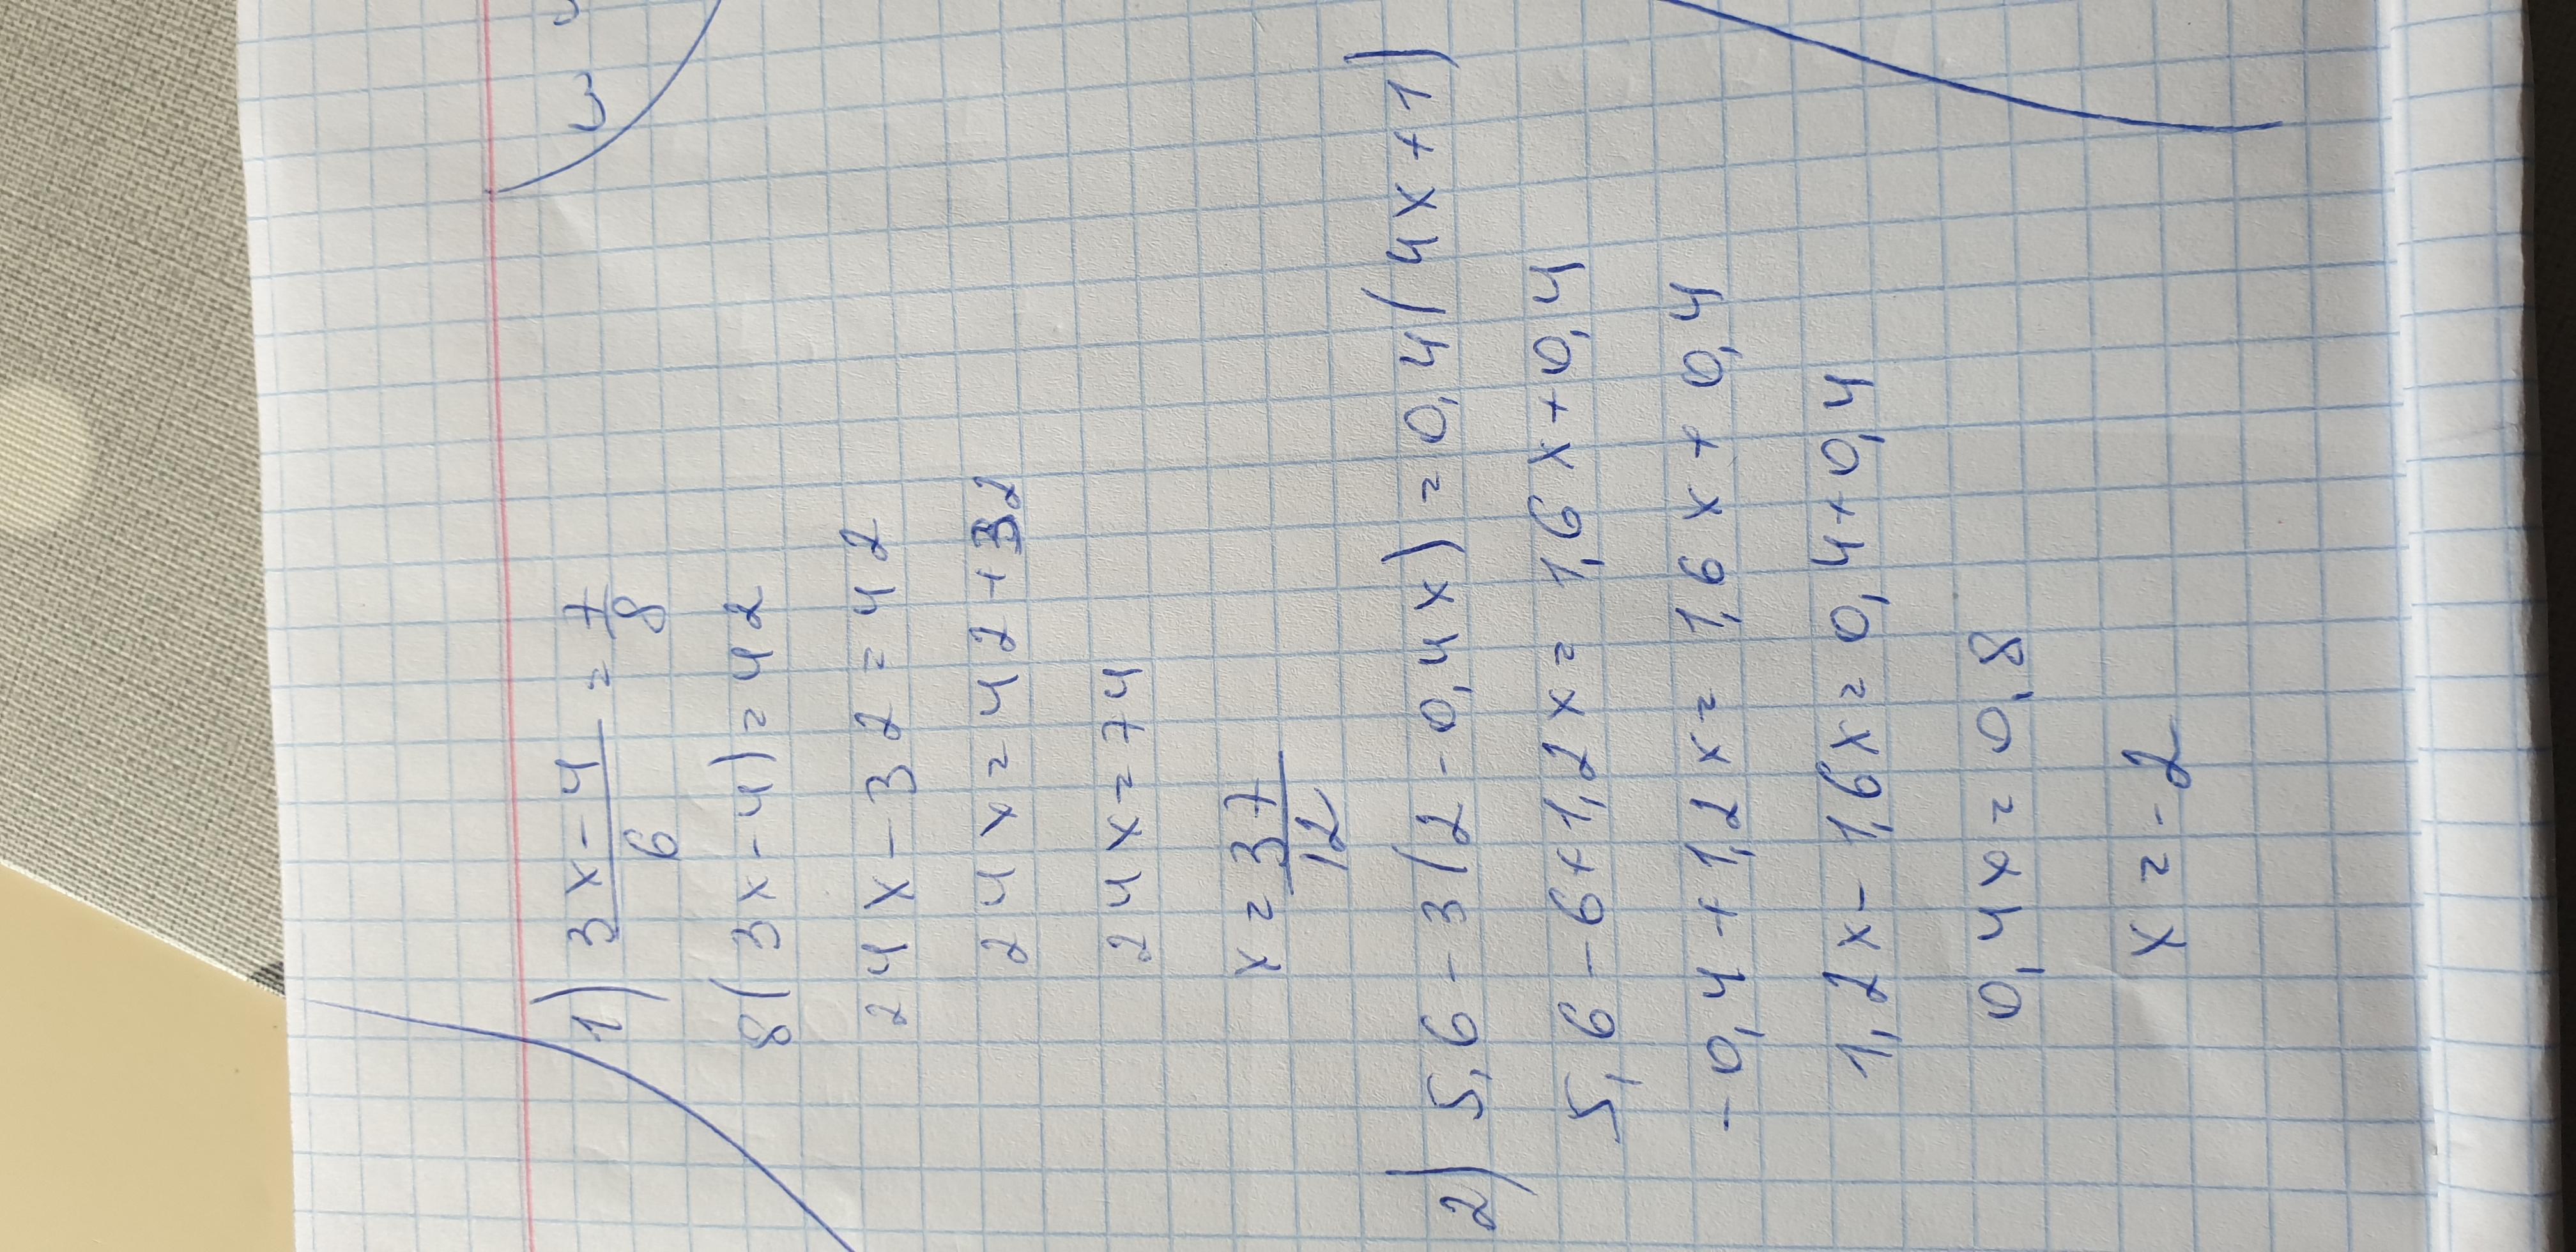 1) 3x-4/6 = 7/8
8(3x-4)=42
24x-32=42
24x=42+32
24x=74
x=37/12
2) 5,6-3(2-0,4x)=0,4(4x+1)
5,6-6+1,2x=1,6x+0,4
-0,4+1,2x=1,6x+0,4
1,2x-1,6x=0,4+0,4
0,4x=0,8
x=-2